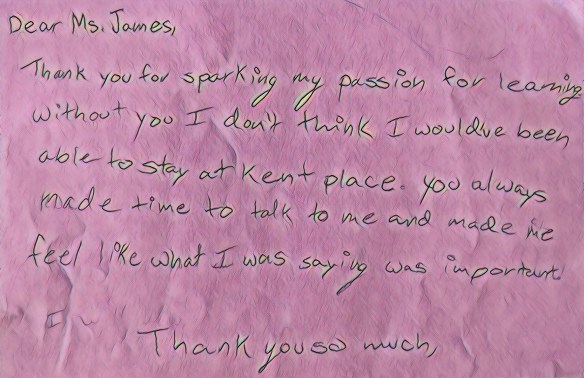 Dear Ms. James,
Thank you for sparking my passion for learning
without you I don't think I would've been
able to stay at Kent place. you always
made time to talk to me and made me
feel like what I was saying was important
I
Thank you so much,